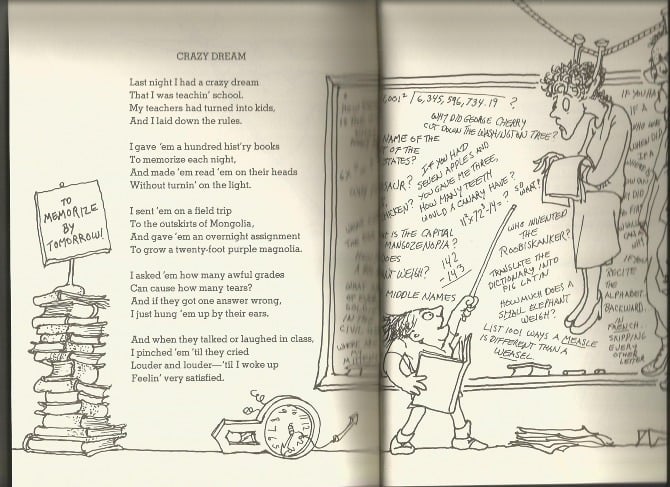 CRAZY DREAM
Last night I had a crazy dream
That I was teachin' school.
My teachers had turned into kids,
And I laid down the rules.
I gave 'em a hundred hist'ry books
To memorize each night,
And made 'em read 'em on their heads
Without turnin' on the light.
I sent 'em on a field trip
To the outskirts of Mongolia,
And gave 'em an overnight assignment
To grow a twenty-foot purple magnolia.
I asked 'em how many awful grades
Can cause how many tears?
And if they got one answer wrong,
I just hung 'em up by their ears.
And when they talked or laughed in class,
I pinched 'em 'til they cried
Louder and louder—'til I woke up
Feelin' very satisfied.
TO
MEMORIZE
BY
TOMORROW!
6,345,596,734.19 ?
WHY DID GEORGE CHERRY
CUT DOWN THE WASHINGTON TREE?
NAME OF THE
T OF THE
STATES?
IF YOU HAD
SEVEN APPLES AND
YOU GAVE ME THREE,
HOW MANY TEETH
WOULD A CANARY HAVE?
SO
WHAT?
IS THE CAPITAL
MIDDLE NAMES
WEIGH?
142
-143
WHO INVENTED
THE
ROOBISKANKER?
TRANSLATE THE
DICTIONARY INTO
PIG LATIN
HOW MUCH DOES A
SMALL ELEPHANT
WEIGH?
LIST 1001 WAYS A MEASLE
IS DIFFERENT THAN A
WEASEL.
RECITE
THE
ALPHABET
BACKWARD
IN
FRENCH,
SKIPPING
EVERY
OTHER
LETTER